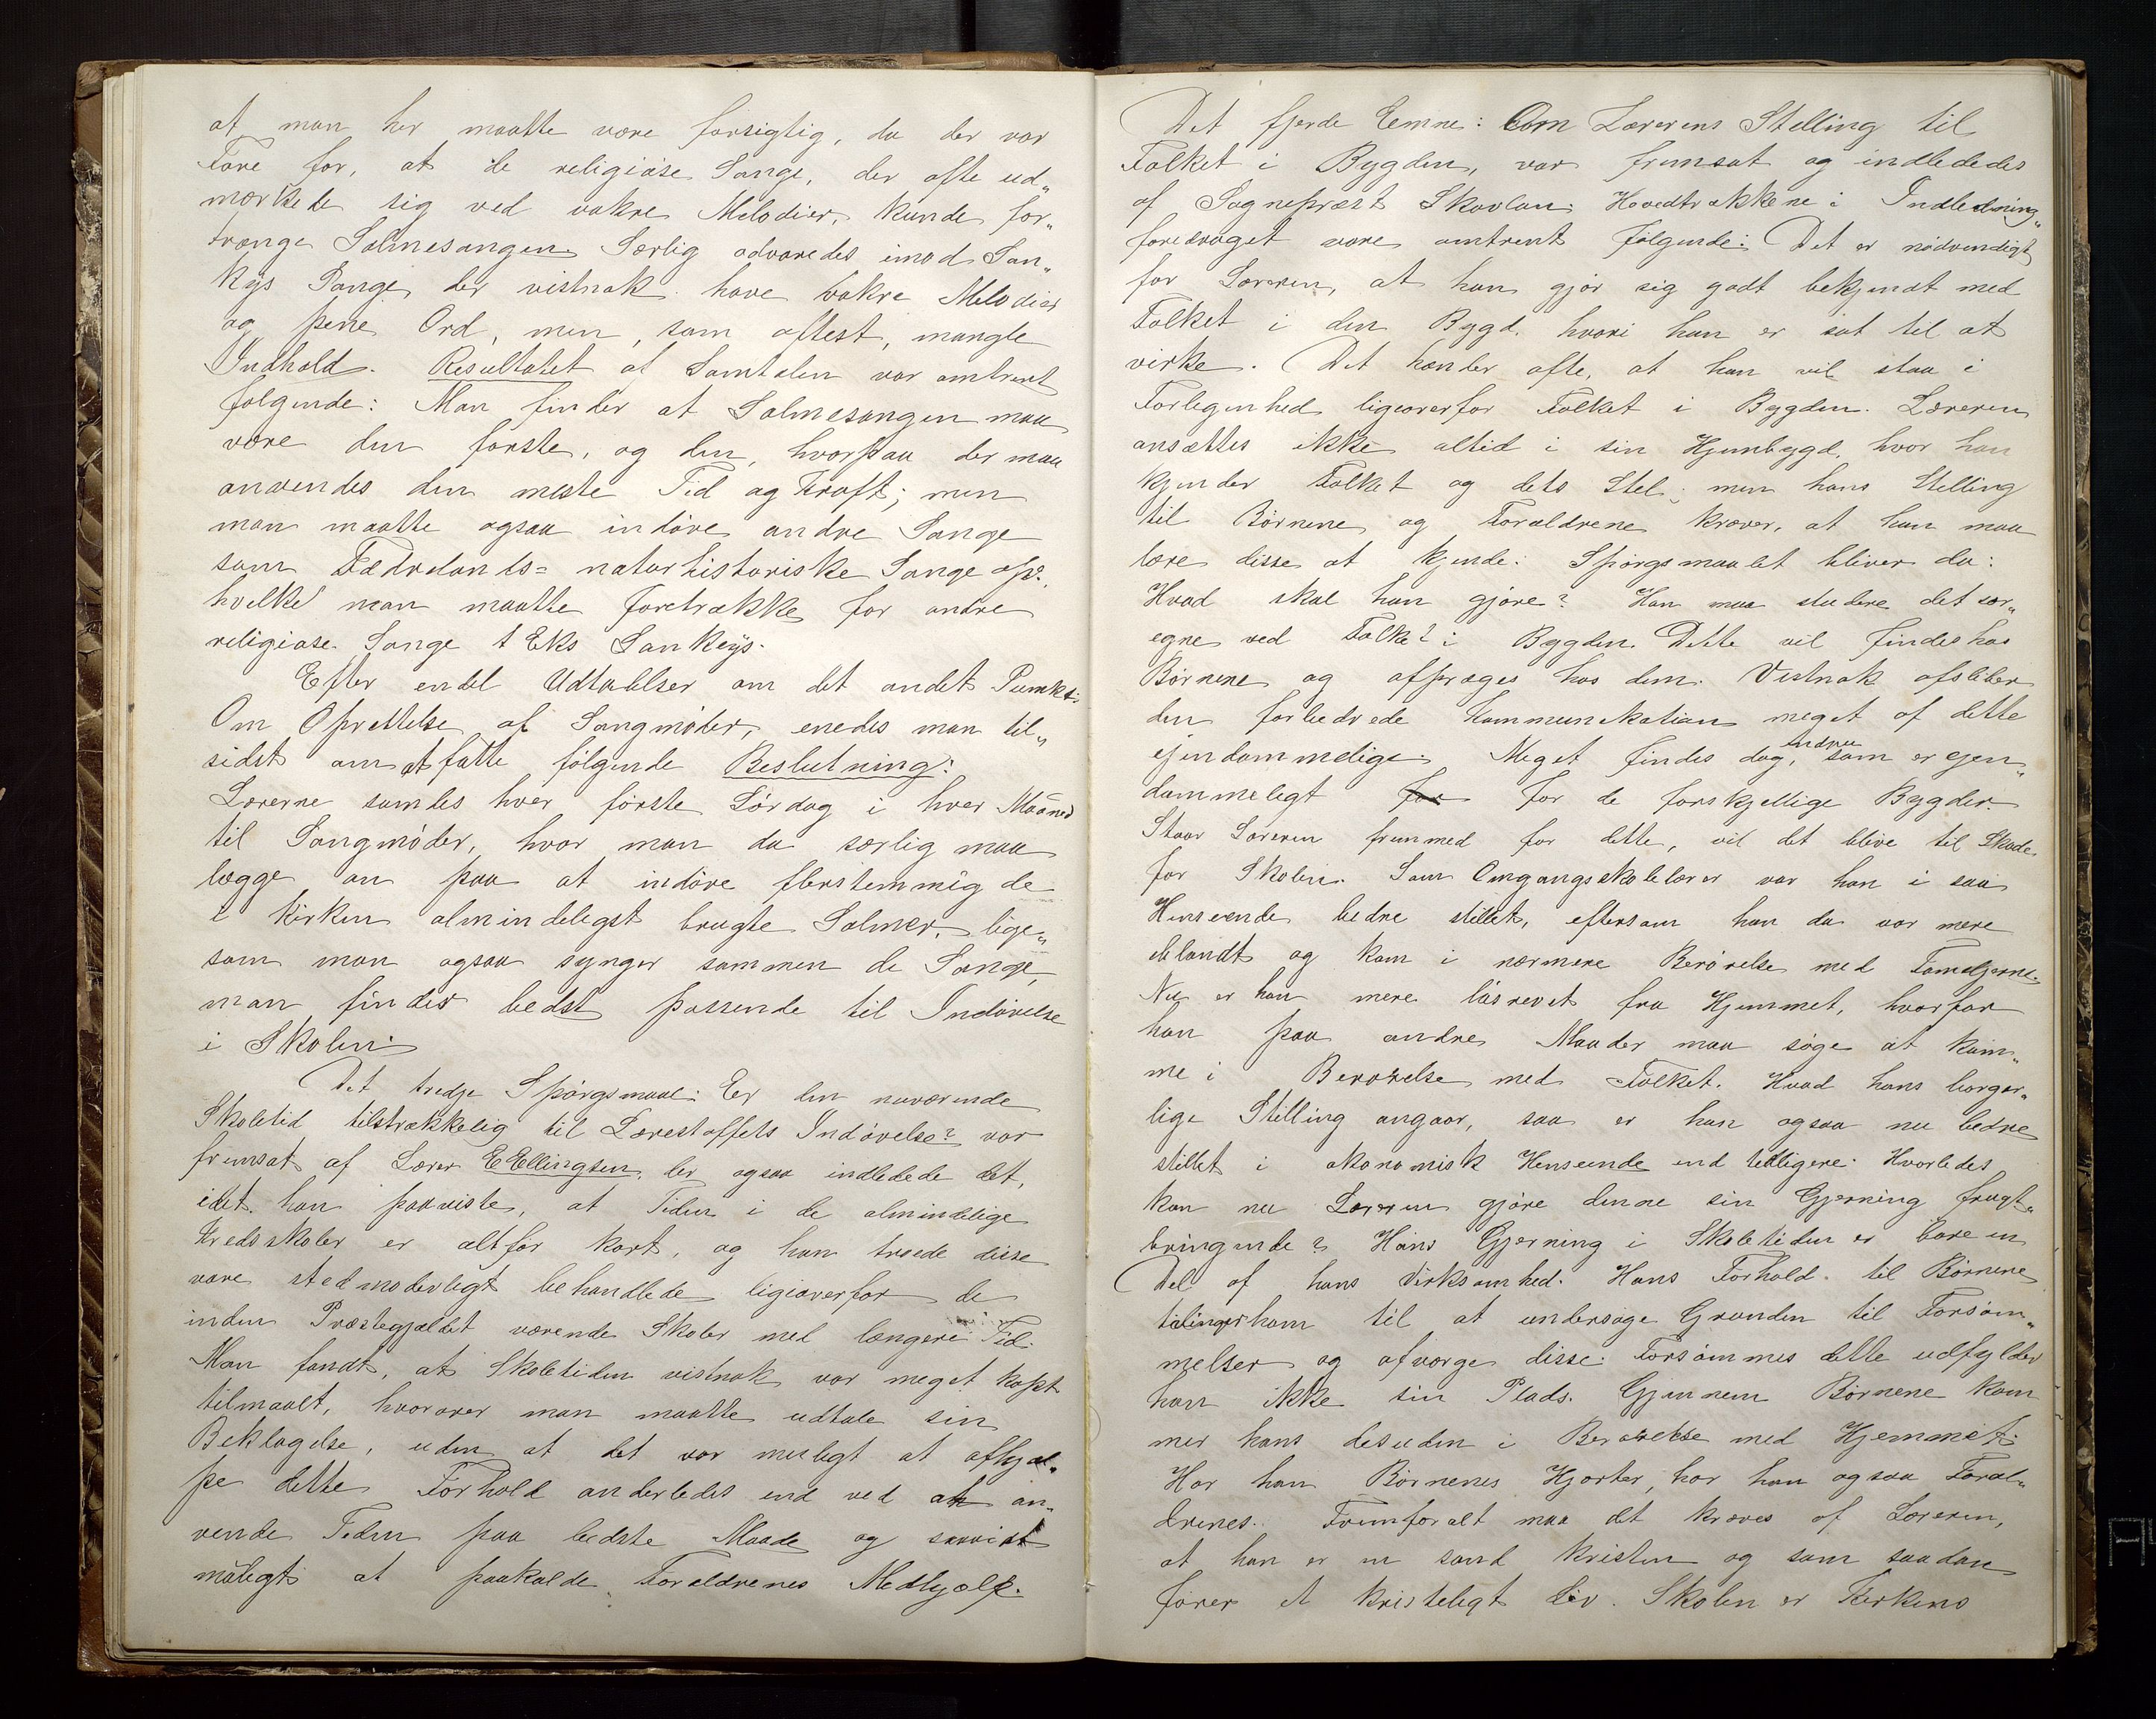 at man her maatte være forsigtig, da der var
Fare for, at de religiøse Sange, der ofte ud„
mærkede sig ved vakre Melodier, kunde for„
trænge Salmesangen. Særlig advaredes imod San„
keys Sange, der vistnok have vakre Melodier
og pene Ord, men, som oftest, mangle
Indhold. Resultatet af Samtalen var omtrent
følgende: Man finder at Salmesangen maa
være den første, og den, hvorpaa der maa
anvendes den meste Tid og Kraft; men
man maatte ogsaa indøve andre Sange
som Fædrelands= naturhistoriske Sange osv.
hvilke man maatte foretrække for andre
religiøse Sange t Eks Sankeys.
Efter endel Udtalelser om det andet Punkt:
Om Oprettelse af Sangmøder, enedes man til„
sidst om at fatte følgende Beslutning:
Lærerne samles hver første Lørdag i hver Maaned
til Sangmøder, hvor man da særlig maa
lægge an paa at indøve flerstemmig de
i Kirken almindeligst brugte Salmer, lige„
som man ogsaa synger sammen de Sange,
man finder bedst passende til Indøvelse
i Skolen.
Det tredje Spørgsmaal: Er den nuværende
Skoletid tilstrækkelig til Lærestoffets Indøvelse? var
fremsat af Lærer E Ellingsen, der ogsaa indledede det,
idet han paaviste, at Tiden i de almindelige
Kredsskoler er altfor kort, og han troede disse
vare stedmoderligt behandlede ligeoverfor de
inden Præstegjældet værende Skoler med længere Tid.
Man fandt, at Skoletiden vistnok var meget knapt
tilmaalt, hvorover man maatte udtale sin
Beklagelse, uden at det var muligt at afhjæl„
pe dette Forhold anderledes end ved at an„
vende Tiden paa bedste Maade og saavidt
muligt at paakalde Forældrenes Medhjælp.
Det fjerde Emne: Om Lærerens Stilling til
Folket i Bygden, var fremsat og indlededes
af Sogneprest Skavlan. Hovedtrækkene i Indlednings„
foredraget vare omtrent følgende: Det er nødvendigt
for Læreren, at han gjør sig godt bekjendt med
Folket i den Bygd, hvori han er sat til at
virke. Det hænder ofte, at han vil staa i
Forlegenhed ligeoverfor Folket i Bygden. Læreren
ansættes ikke altid i sin Hjembygd, hvor han
kjender Folket og dets Stel; men hans Stilling
til Børnene og Forældrene kræver, at han maa
lære disse at kjende. Spørgsmaalet bliver da:
Hvad skal han gjøre? Han maa studere det sær„
egne ved Folket i Bygden. Dette vil findes hos
Børnene og afpræges hos dem. Vistnok afsliber
den forbedrede Kommunikation meget af dette
ejendommelige. Meget findes dog endnu, som er ejen„
dommeligt for for de forskjellige Bygder.
Staar Læreren fremmed for dette, vil det blive til Skade
for Skolen. Som Omgangsskolelærer var han i saa
Henseende bedre stillet, eftersom han da var mere
iblandt og kom i nærmere Berørelse med Familjerne.
Nu er han mere løsrevet fra Hjemmet, hvorfor
han paa andre Maader maa søge at kom„
me i Berørelse med Folket. Hvad hans borger„
lige Stilling angaar, saa er han ogsaa nu bedre
stillet i økonomisk Henseende end tidligere. Hvorledes
kan nu Læreren gjøre denne sin Gjerning frugt„
bringende? Hans Gjerning i Skoletiden er bare en
Del af hans Virksomhed. Hans Forhold til Børnene
tvinger ham til at undersøge Grunden til Forsøm„
melser og afværge disse. Forsømmes dette udfylder
han ikke sin Plads. Gjennem Børnene kom
mer hans desuden i Berørelse med Hjemmet.
Har han Børnenes Hjerter, har han ogsaa Foræl„
drenes. Fremforalt maa det kræves af Læreren,
at han er en sand Kristen og som saadan
fører et kristeligt Liv. Skolen er Kirkens